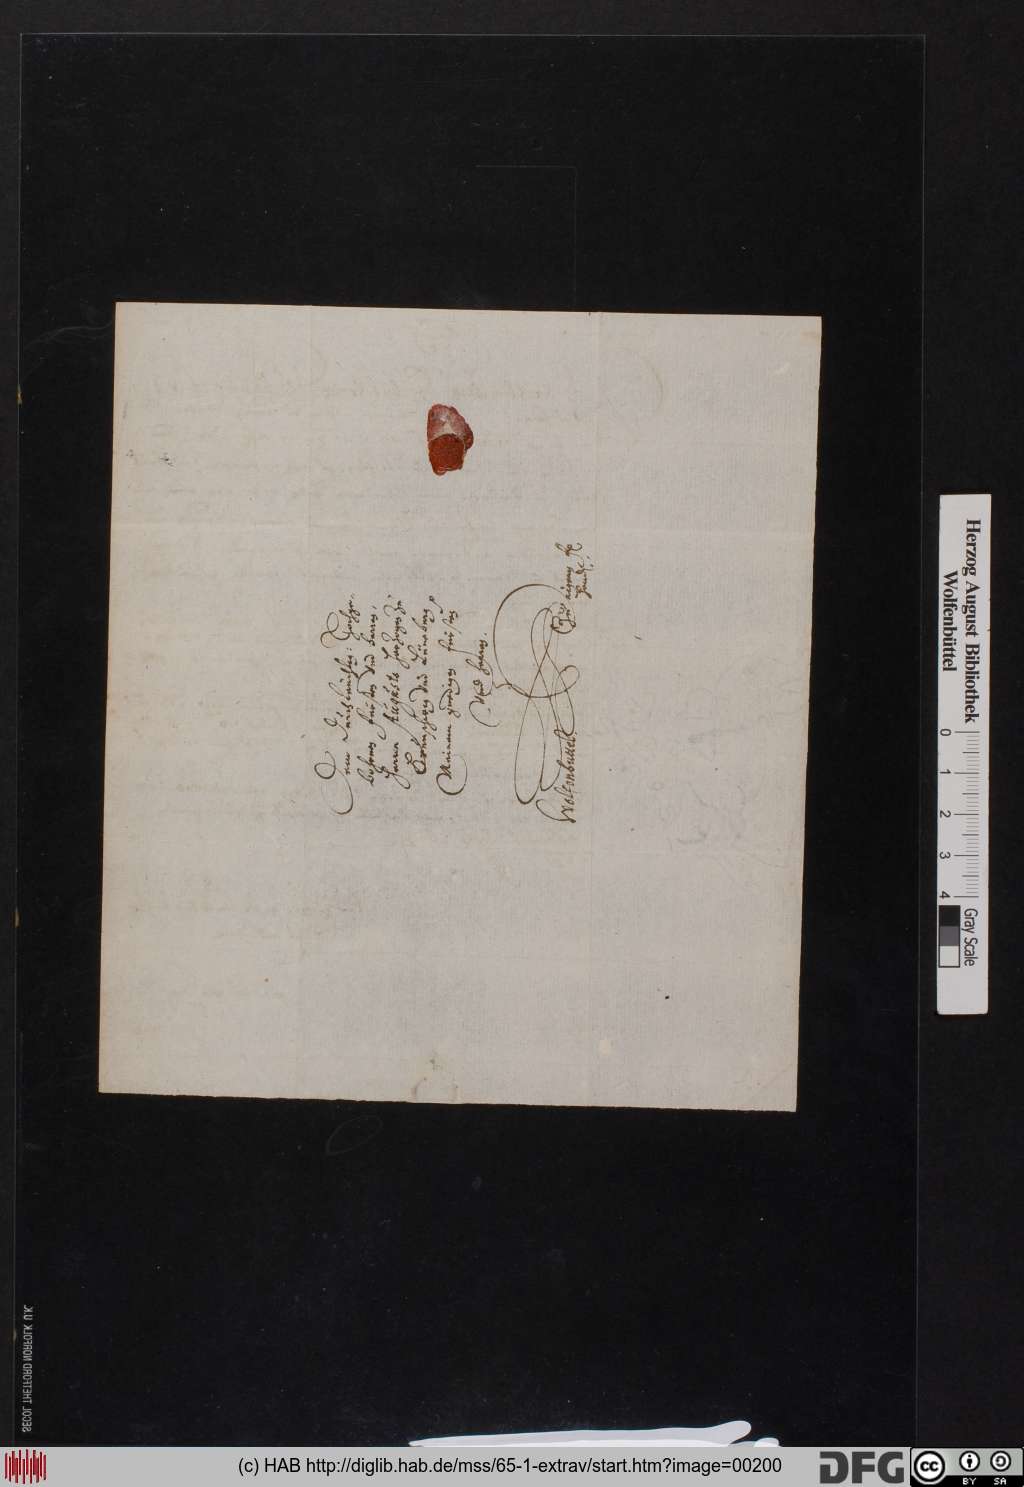 Dem Durchleuchtig: Hochge-
bohrnen Fürsten und Herren,
Herren Augusto Hertzogen zu
Braunschweig und Lüneburg
Meinem gnedigen Fürsten
Und Herren.
Wolfenbuttel.
Zu eignen
Handen.
Herzog August Bibliothek
Wolfenbüttel
0 1 2 3 4
Gray Scale
SECOL THETFORD NORFOLK U.K.
(c) HAB http://diglib.hab.de/mss/65-1-extrav/start.htm?image=00200
DFG
cc BY SA